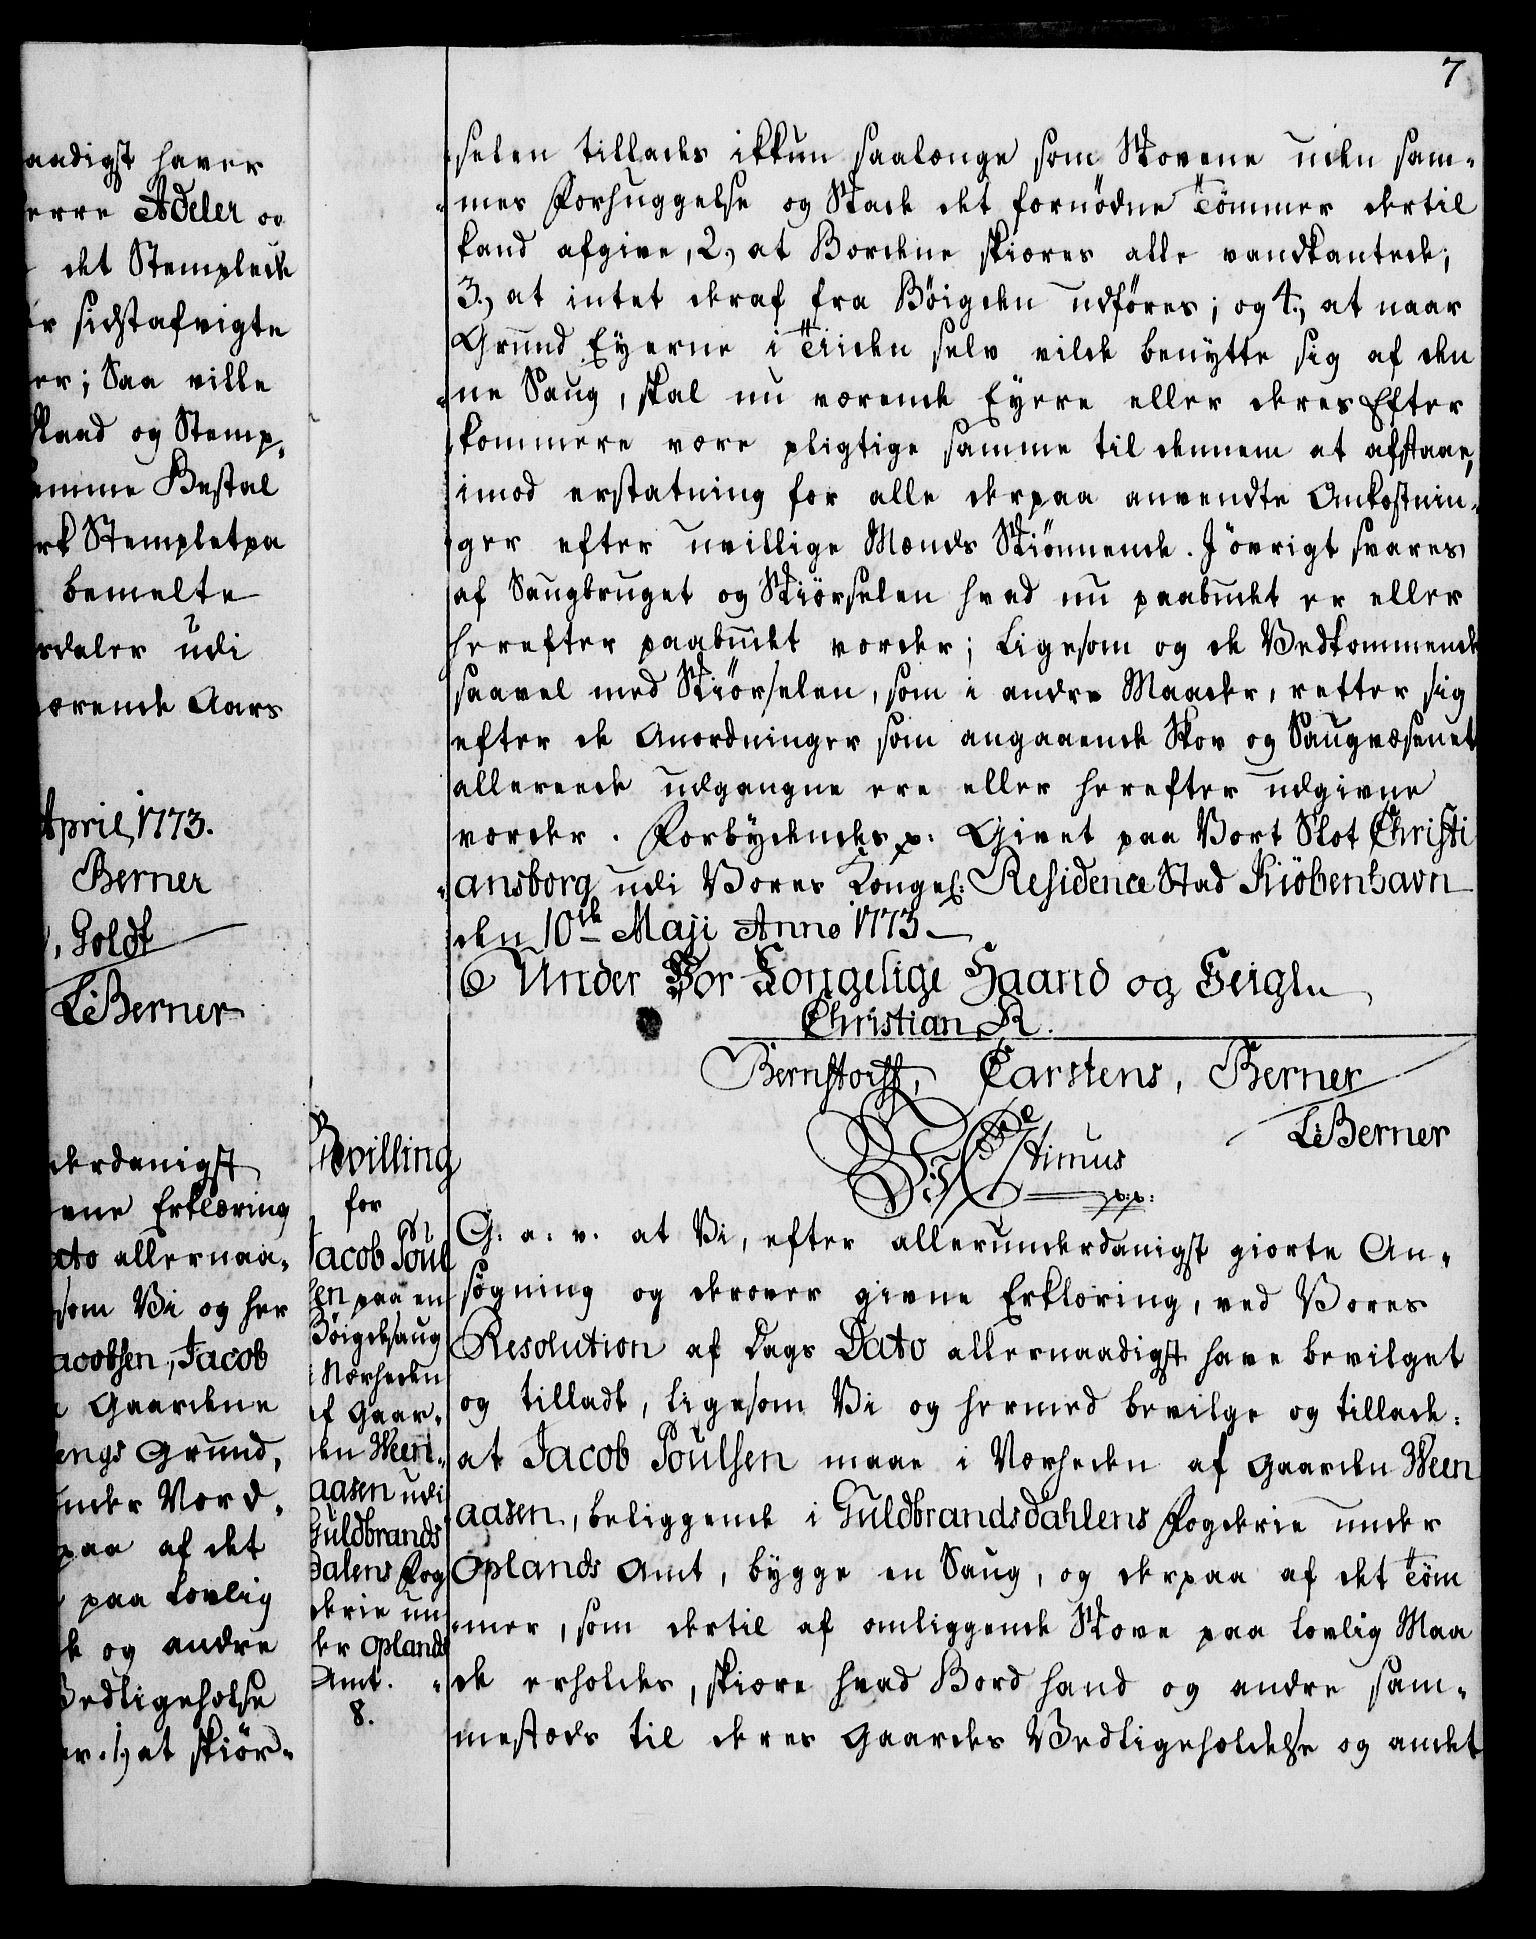 7
aadigst haver
erre Adeler og
det Stemplede
er sidstafvigte
er; Saa ville
Raad og Stemp¬
emme Bestal
erk Stempletpa
bemelte
sdaler udi
ærende Aars
April, 1773.
Berner
, Goldt
L: Berner
derdanigst
ene Erklæring
ato allernaa¬
som Vi og her
acobsen, Jacob
Gaardene
engs Grund,
under Vord¬
paa af det
paa lovlig
de og andre
Vedligeholse
er. 1.) at skiør¬
selen tillades ikkun saalænge som Skovene uden sam¬
mes Forhuggelse og Skade det fornødne Tömmer dertil
kand afgive, 2.) at Bordene skiæres alle vandkantede;
3.) at intet deraf fra Bøigden udföres; og 4.) at naar
Grund Eyerne i Tiiden selv vilde benytte sig af den
ne Saug, skal nu værende Eyere eller deres Efter
kommere være pligtige samme til dennem at afstaae,
imod erstatning for alle derpaa anvendte Omkostnin¬
ger efter uvillige Mænds Skiönnende. J övrigt svares
af Saugbruget og Skiörselen hvad nu paabudet er eller
herefter paabudet vorder; Ligesom og de Vedkommende
saavel med Skiörselen, som i andre Maader, retter sig
efter de Anordninger som angaaende Skov og Saugvæsenet
allereede udgangne ere eller herefter udgivne
vorder. Forbydendes p. Givet paa Vort Slot Christi
ansborg udi Vores Kongel: Residence Stad Kiöbenhavn
den 10de Maji Anno 1773.
Under Vor Kongelige Haand og Seigle
Christian R.
Bernstorff, Carstens, Berner
L: Berner
Bevilling
for
Jacob Poul
sen paa en
Bøigdesaug
i Nærheden
af Gaar¬
den Ween¬
aasen udi
Guldbrands
dalens Fog
derie un
der Oplands
Amt.
8.
G. a. v. at Vi, efter allerunderdanigst giorte An¬
søgning og derover givne Erklæring, ved Vores
Resolution af Dags Dato allernaadigst have bevilget
og tilladt, ligesom Vi og hermed bevilge og tillade:
at Jacob Poulsen maae i Nærheden af Gaarden Ween
aasen, beliggende i Guldbrandsdahlens Fogderie under
Oplands Amt, bygge en Saug, og derpaa af det Töm
mer, som dertil af omliggende Skove paa lovlig Maa
de erholdes, skiære hvad Bord hand og andre sam¬
mestæds til deres Gaardes Vedligeholdelse og andet